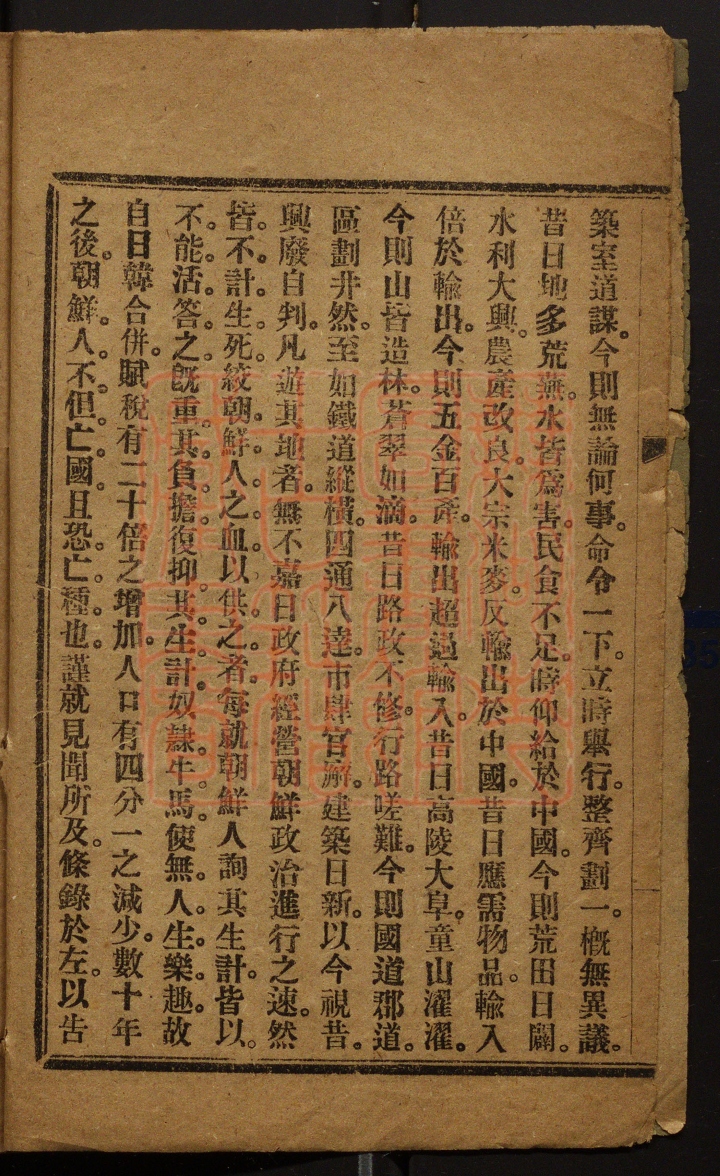 築室道謀。今則無論何事。命令一下。立時舉行。整齊劃一。概無異議。
昔日地多荒蕪。水皆爲害。民食不足。時仰給於中國。今則荒田日闢。
水利大興。農產改良。大宗米麥。反輸出於中國。昔日應需物品。輸入
倍於輸出。今則五金百產。輸出超過輸入。昔日高陵大阜。童山濯濯。
今則山皆造林。蒼翠如滴。昔日路政不修。行路嗟難。今則國道郡道。
區劃井然。至如鐵道縱橫。四通八達。市肆官廨。建築日新。以今視昔。
興廢自判。凡遊其地者。無不嘉日政府經營朝鮮政治進行之速。然
皆。不計生死。絞朝鮮人之血以供之者。每就朝鮮人詢其生計。皆以。
不能活。答之。旣重其負擔。復抑其生計。奴隷牛馬。使無人生樂趣。故
自日韓合併。賦稅有二十倍之增加。人口有四分一之減少。數十年
之後。朝鮮人。不但亡國。且恐亡種也。謹就見聞所及。條錄於左。以告